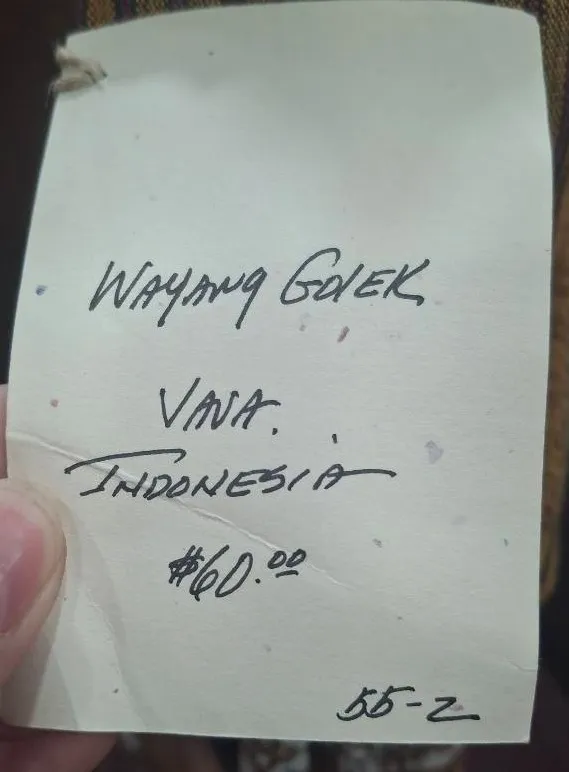 WAYANG GOLEK
VAVA.
INDONESIA
$60.00
55-2